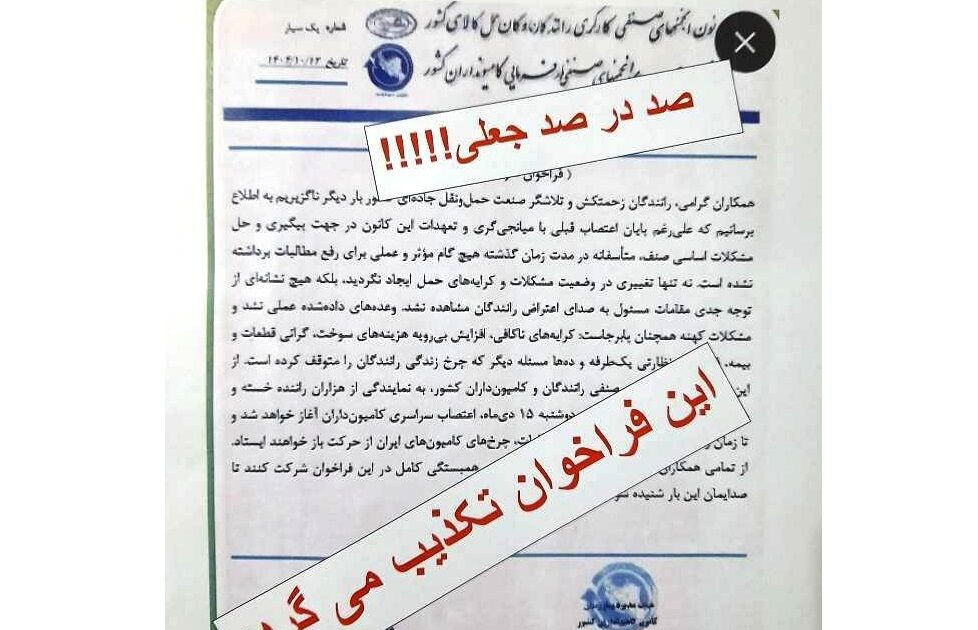 انجمنهای صنفی کارگری رانندگان حمل کالای کشور
شماره
تاریخ ۱۴۰۴/۱۰/۱۳
انجمنهای صنفی کارفرمایی کامیونداران کشور
صد در صد جعلی!!!!!
همکاران گرامی، رانندگان زحمتکش و تلاشگر صنعت حمل‌ونقل جاده‌ای بار دیگر ناگزیریم به اطلاع
برسانیم که علی‌رغم پایان اعتصاب قبلی با میانجی‌گری و تعهدات این کانون در جهت پیگیری و حل
مشکلات اساسی صنف، متأسفانه در مدت زمان گذشته هیچ گام مؤثر و عملی برای رفع مطالبات برداشته
نشده است. نه تنها تغییری در وضعیت مشکلات و کرایه‌های حمل ایجاد نگردید، بلکه هیچ نشانه‌ای از
توجه جدی مقامات مسئول به صدای اعتراض رانندگان مشاهده نشد. وعده‌های داده‌شده عملی نشد و
مشکلات کهنه همچنان پابرجاست: کرایه‌های ناکافی، افزایش بی‌رویه هزینه‌های سوخت، گرانی قطعات و
بیمه، نظارتی یک‌طرفه و ده‌ها مسئله دیگر که چرخ زندگی رانندگان را متوقف کرده است. از
این صنفی رانندگان و کامیون‌داران کشور، به نمایندگی از هزاران راننده خسته و
دوشنبه ۱۵ دی‌ماه، اعتصاب سراسری کامیون‌داران آغاز خواهد شد و
تا زمان چرخ‌های کامیون‌های ایران از حرکت باز خواهند ایستاد.
از تمامی همکاران همبستگی کامل در این فراخوان شرکت کنند تا
صدایمان این بار شنیده
این فراخوان تکذیب می